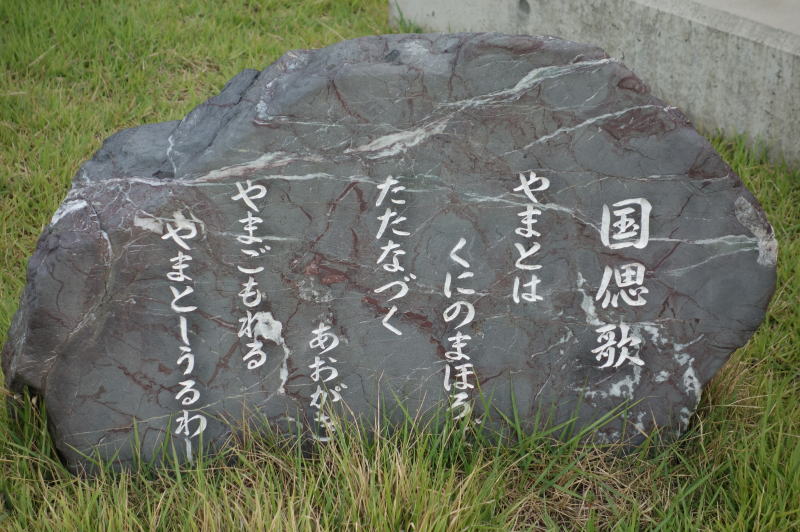 国偲歌
やまとは
くにのまほろ
たたなづく
あおがき
やまごもれる
やまとしうるわし